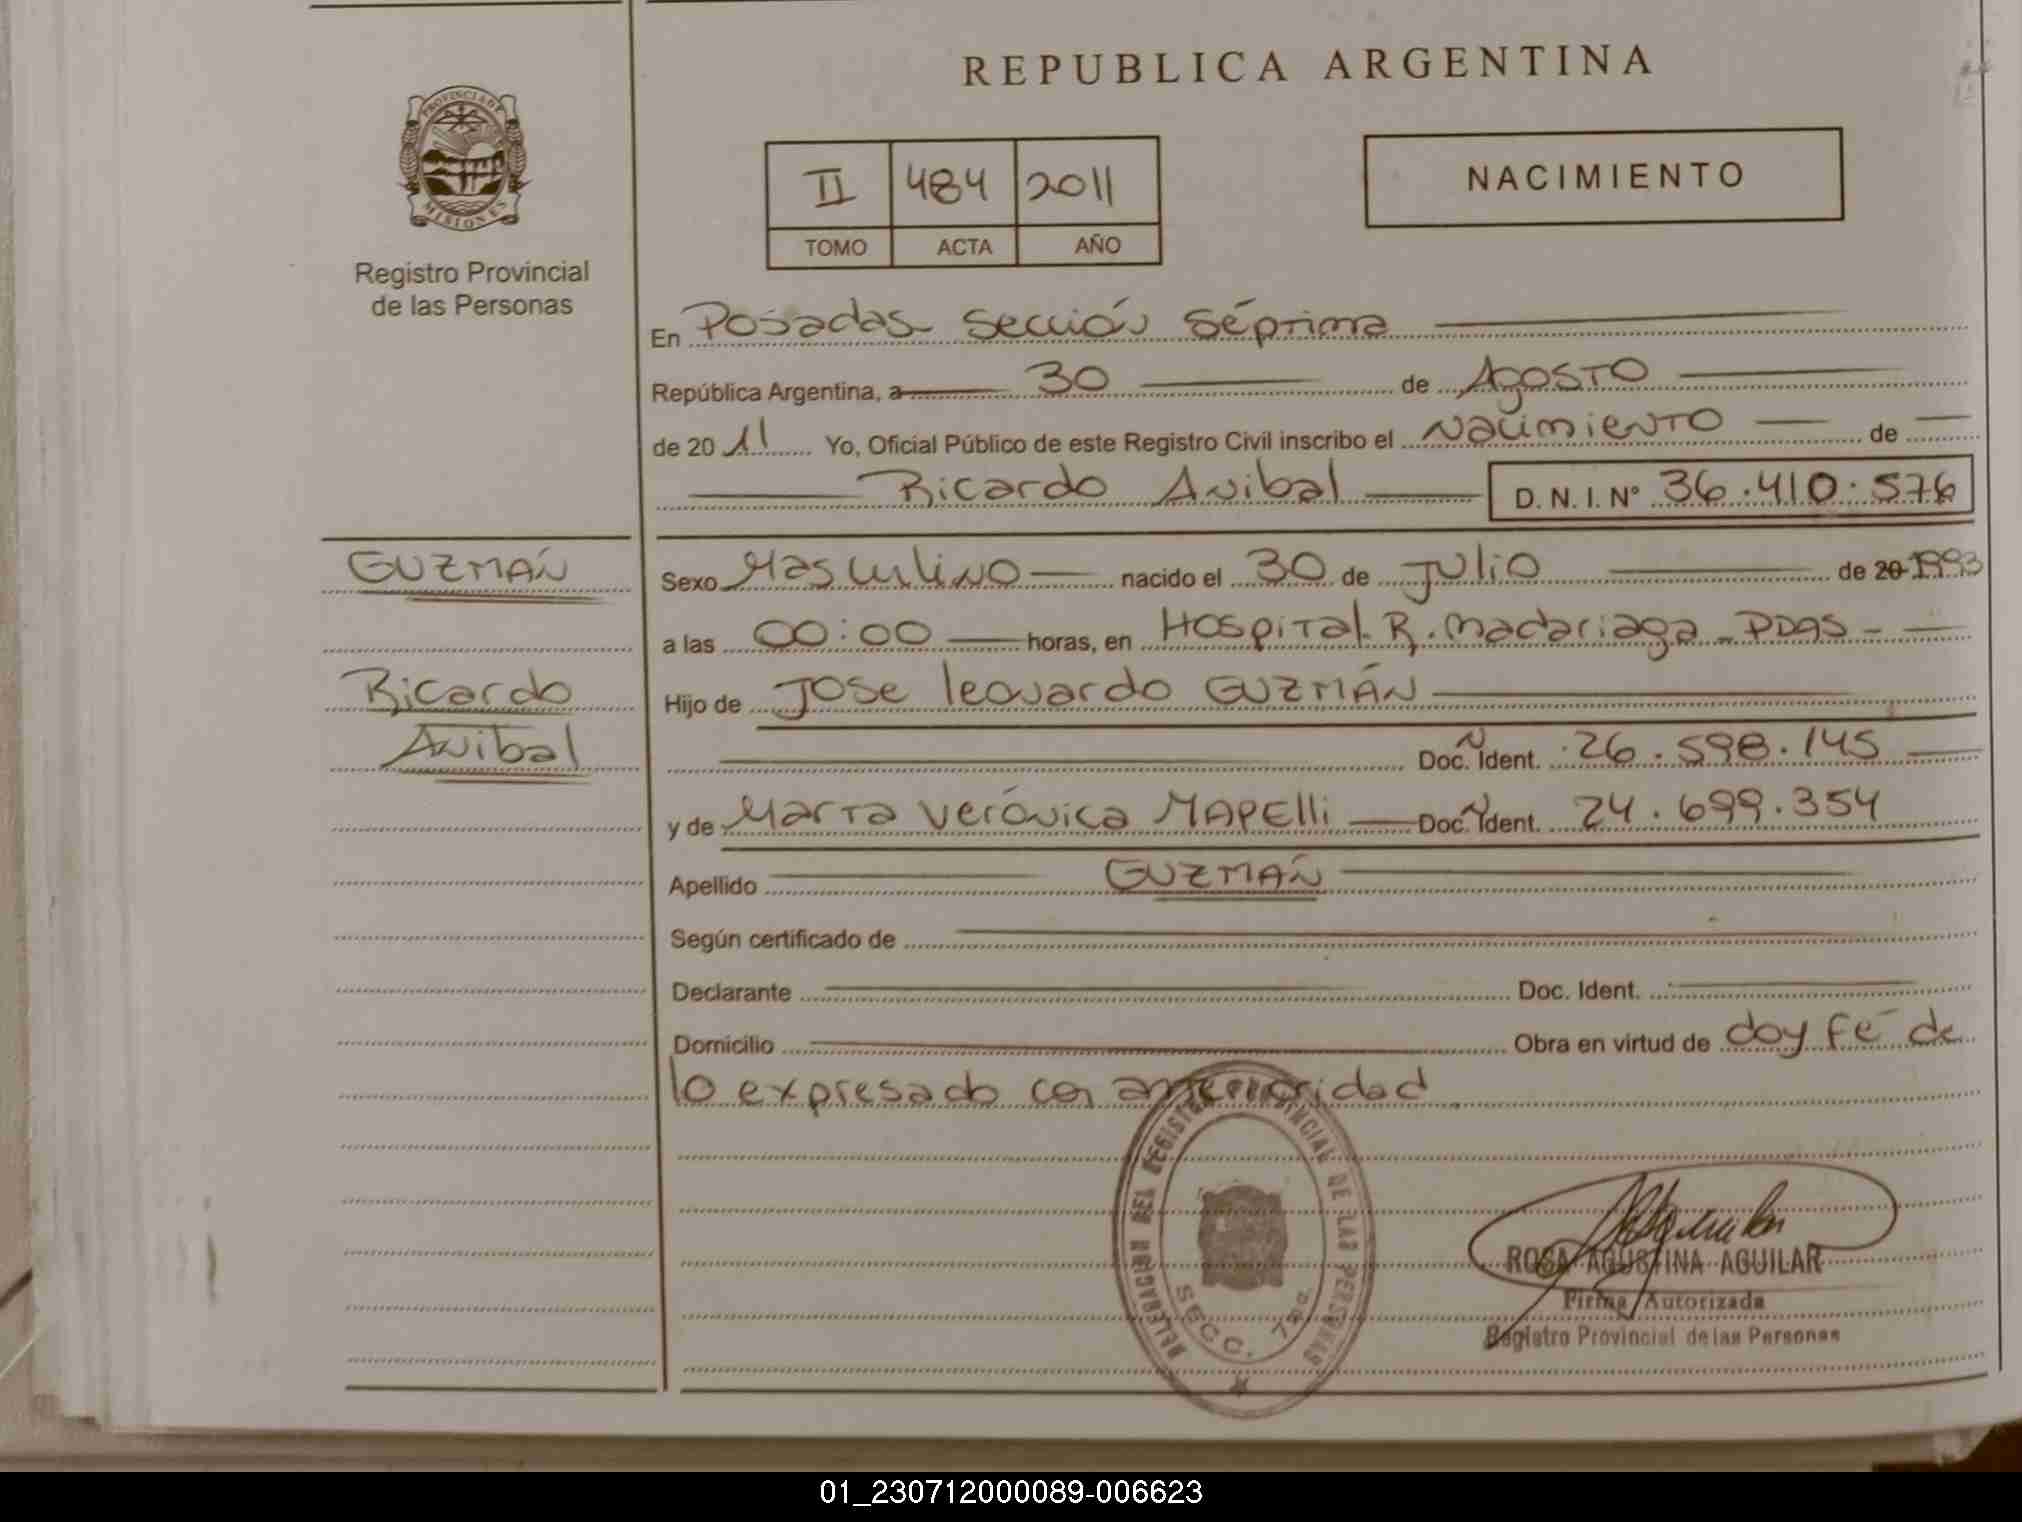 REPUBLICA ARGENTINA
PROVINCIA DE
MISIONES
Registro Provincial
de las Personas
II 484 2011
TOMO ACTA AÑO
NACIMIENTO
En Posadas Sección Séptima
República Argentina, a 30 de Agosto
de 20 11 Yo, Oficial Público de este Registro Civil inscribo el Nacimiento de
Ricardo Anibal D. N. I. Nº 36.410.576
GUZMÁN
Ricardo
Anibal
Sexo Masculino nacido el 30 de Julio de 20 1993
a las 00:00 horas, en Hospital R. Madariaga - PDAS -
Hijo de Jose leonardo GUZMÁN
Doc. Ident. 26.598.145
y de Marta Verónica MAPElli Doc. Ident. 24.699.354
Apellido GUZMÁN
Según certificado de
Declarante Doc. Ident.
Domicilio Obra en virtud de doy Fé de
lo expresado con anterioridad.
DELEGACION DEL REGISTRO PROVINCIAL DE LAS PERSONAS
SECC. 7ma.
ROSA AGUSTINA AGUILAR
Firma Autorizada
Registro Provincial de las Personas
01_230712000089-006623